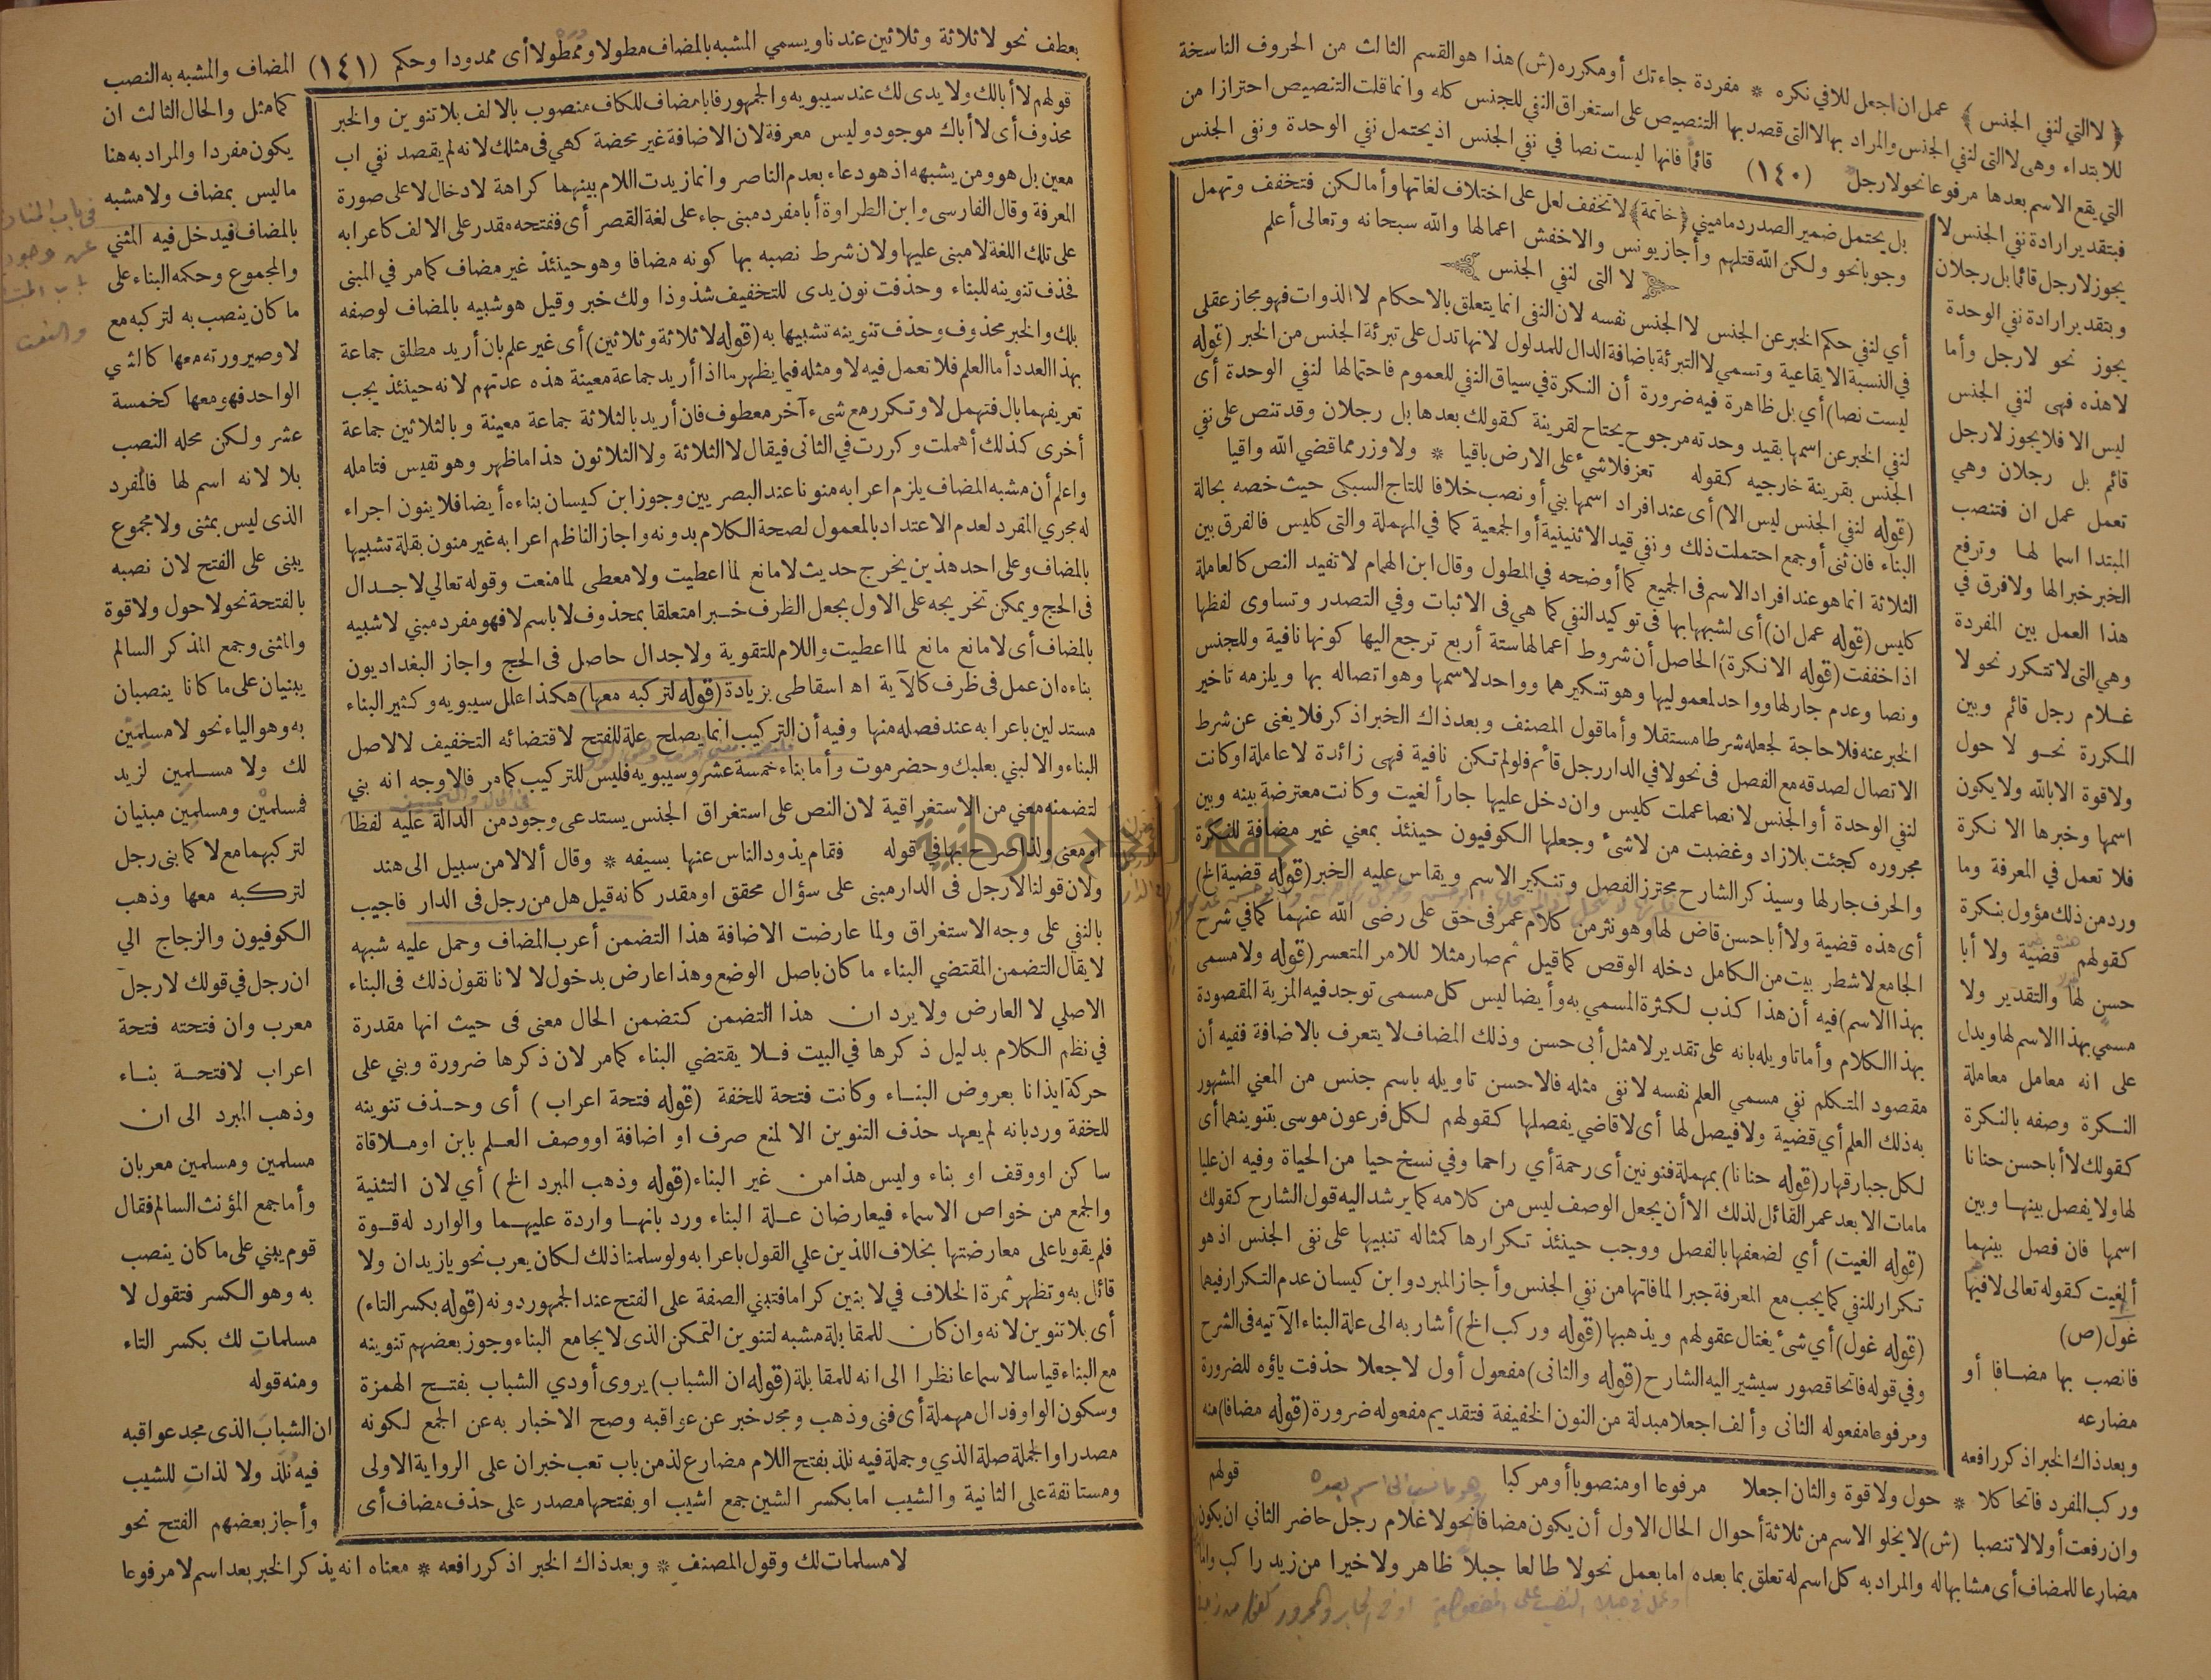 ﴿ لا التي لنفي الجنس ﴾ عمل ان اجعل للافي نكره * مفردة جاءتك أو مكرره (ش) هذا هو القسم الثالث من الحروف الناسخة
للابتداء وهى لا التى لنفي الجنس والمراد بها لا التى قصد بها التنصيص على استغراق النفي للجنس كله وانما قلت التنصيص احترازا من
التي يقع الاسم بعدها مرفوعا نحو لا رجل (١٤٠) قائما فانها ليست نصا في نفي الجنس اذ يحتمل نفي الوحدة ونفى الجنس
فبتقدير ارادة نفي الجنس لا
يجوز لا رجل قائما بل رجلان
وبتقدير ارادة نفي الوحدة
يجوز نحو لا رجل وأما
لا هذه فهى لنفي الجنس
ليس الا فلا يجوز لا رجل
قائم بل رجلان وهي
تعمل عمل ان فتنصب
المبتدا اسما لها وترفع
الخبر خبرا لها ولا فرق في
هذا العمل بين المفردة
وهي التى لا تتكرر نحو لا
غلام رجل قائم وبين
المكررة نحو لا حول
ولا قوة الا بالله ولا يكون
اسمها وخبرها الا نكرة
فلا تعمل في المعرفة وما
ورد من ذلك مؤول بنكرة
كقولهم قضية ولا أبا
حسن لها والتقدير ولا
مسمي بهذا الاسم لها ويدل
على انه معامل معاملة
النكرة وصفه بالنكرة
كقولك لا أبا حسن حنانا
لها ولا يفصل بينها وبين
اسمها فان فصل بينهما
ألغيت كقوله تعالى لا فيها
غول (ص)
فانصب بها مضافا أو
مضارعه
وبعد ذاك الخبر اذكر رافعه
وركب المفرد فاتحا كلا * حول ولا قوة والثان اجعلا مرفوعا او منصوبا أو مركبا
وان رفعت أولا لا تنصبا (ش) لا يخلو الاسم من ثلاثة أحوال الحال الاول أن يكون مضافا نحو لا غلام رجل حاضر الثاني ان يكون
مضارعا للمضاف أى مشابها له والمراد به كل اسم له تعلق بما بعده اما بعمل نحو لا طالعا جبلا ظاهر ولا خيرا من زيد راكب واما
بل يحتمل ضمير الصدر دماميني ﴿خاتمة﴾ لا تخفف لعل على اختلاف لغاتها وأما لكن فتخفف وتهمل
وجوبا نحو ولكن الله قتلهم وأجاز يونس والاخفش اعمالها والله سبحانه وتعالى أعلم
لا التى لنفي الجنس
أي لنفي حكم الخبر عن الجنس لا الجنس نفسه لان النفى انما يتعلق بالاحكام لا الذوات فهو مجاز عقلى
في النسبة الايقاعية وتسمي لا التبرئة باضافة الدال للمدلول لانها تدل على تبرئة الجنس من الخبر (قوله
ليست نصا) أي بل ظاهرة فيه ضرورة أن النكرة في سياق النفي للعموم فاحتمالها لنفي الوحدة أى
لنفي الخبر عن اسمها بقيد وحدته مرجوح يحتاج لقرينة كقولك بعدها بل رجلان وقد تنص على نفي
الجنس بقرينة خارجيه كقوله تعز فلا شىء على الارض باقيا * ولا وزر مما قضي الله واقيا
(قوله لنفي الجنس ليس الا) أى عند افراد اسمها بني أو نصب خلافا للتاج السبكى حيث خصه بحالة
البناء فان ثنى أو جمع احتملت ذلك ونفي قيد الاثنينية أو الجمعية كما في المهملة والتى كليس فالفرق بين
الثلاثة انما هو عند افراد الاسم فى الجميع كما أوضحه في المطول وقال ابن الهمام لا تفيد النص كالعاملة
كليس (قوله عمل ان) أى لشبهها بها فى توكيد النفي كما هي فى الاثبات وفي التصدر وتساوى لفظها
اذا خففت (قوله الا نكرة) الحاصل أن شروط اعمالها ستة أربع ترجع اليها كونها نافية وللجنس
ونصا وعدم جار لها وواحد لمعموليها وهو تنكيرهما وواحد لاسمها وهو اتصاله بها ويلزمه تاخير
الخبر عنه فلا حاجة لجعله شرطا مستقلا وأما قول المصنف وبعد ذاك الخبر اذكر فلا يغنى عن شرط
الاتصال لصدقه مع الفصل فى نحو لا في الدار رجل قائم فلو لم تكن نافية فهى زائدة لا عاملة او كانت
لنفي الوحدة أو الجنس لا نصا عملت كليس وان دخل عليها جار ألغيت وكانت معترضة بينه وبين
مجروره كجئت بلا زاد وغضبت من لا شىء وجعلها الكوفيون حينئذ بمعني غير مضافة للنكرة
والحرف جار لها وسيذكر الشارح محترز الفصل وتنكير الاسم ويقاس عليه الخبر (قوله قضية الخ)
أى هذه قضية ولا أبا حسن قاض لها وهو نثر من كلام عمر فى حق على رضى الله عنهما كما في شرح
الجامع لا شطر بيت من الكامل دخله الوقص كما قيل ثم صار مثلا للامر المتعسر (قوله ولا مسمى
بهذا الاسم) فيه أن هذا كذب لكثرة المسمي به وأيضا ليس كل مسمى توجد فيه المزية المقصودة
بهذا الكلام وأما تاويله بانه على تقدير لا مثل أبى حسن وذلك المضاف لا يتعرف بالاضافة ففيه أن
مقصود المتكلم نفي مسمي العلم نفسه لا نفى مثله فالاحسن تاويله باسم جنس من المعني المشهور
به ذلك العلم أي قضية ولا فيصل لها أى لا قاضي يفصلها كقولهم لكل فرعون موسى بتنوينهما أى
لكل جبار قهار (قوله حنانا) بمهملة فنونين أى رحمة أي راحما وفي نسخ حيا من الحياة وفيه ان عليا
ما مات الا بعد عمر القائل لذلك الا أن يجعل الوصف ليس من كلامه كما يرشد اليه قول الشارح كقولك
(قوله الغيت) أي لضعفها بالفصل ووجب حينئذ تكرارها كمثاله تنبيها على نفى الجنس اذ هو
تكرار للنفي كما يجب مع المعرفة جبرا لما فاتها من نفي الجنس وأجاز المبرد وابن كيسان عدم التكرار فيهما
(قوله غول) أي شىء يغتال عقولهم ويذهبها (قوله وركب الخ) أشار به الى علة البناء الآتيه فى الشرح
وفي قوله فاتحا قصور سيشير اليه الشارح (قوله والثانى) مفعول أول لاجعلا حذفت ياؤه للضرورة
ومرفوعا مفعوله الثانى وألف اجعلا مبدلة من النون الخفيفة فتقديم مفعوله ضرورة (قوله مضافا) منه
قولهم
بعطف نحو لا ثلاثة وثلاثين عندنا ويسمي المشبه بالمضاف مطولا وممطولا أى ممدودا وحكم (١٤١) المضاف والمشبه به النصب
كما مثل والحال الثالث ان
يكون مفردا والمراد به هنا
ما ليس بمضاف ولا مشبه
بالمضاف فيدخل فيه المثني
والمجموع وحكمه البناء على
ما كان ينصب به لتركبه مع
لا وصيرورته معها كالشي
الواحد فهو معها كخمسة
عشر ولكن محله النصب
بلا لانه اسم لها فالمفرد
الذى ليس بمثنى ولا مجموع
يبنى على الفتح لان نصبه
بالفتحة نحو لا حول ولا قوة
والمثنى وجمع المذكر السالم
يبنيان على ما كانا ينصبان
به وهو الياء نحو لا مسلمين
لك ولا مسلمين لزيد
فمسلمين ومسلمين مبنيان
لتركبهما مع لا كما بنى رجل
لتركبه معها وذهب
الكوفيون والزجاج الي
ان رجل في قولك لا رجل
معرب وان فتحته فتحة
اعراب لا فتحة بناء
وذهب المبرد الى ان
مسلمين ومسلمين معربان
وأما جمع المؤنث السالم فقال
قوم يبني على ما كان ينصب
به وهو الكسر فتقول لا
مسلمات لك بكسر التاء
ومنه قوله
ان الشباب الذى مجد عواقبه
فيه نلذ ولا لذات للشيب
وأجاز بعضهم الفتح نحو
لا مسلمات لك وقول المصنف * وبعد ذاك الخبر اذكر رافعه * معناه انه يذكر الخبر بعد اسم لا مرفوعا
قولهم لا أبا لك ولا يدى لك عند سيبويه والجمهور فابا مضاف للكاف منصوب بالالف بلا تنوين والخبر
محذوف أى لا أباك موجود وليس معرفة لان الاضافة غير محضة كهي فى مثلك لانه لم يقصد نفي اب
معين بل هو ومن يشبهه اذ هو دعاء بعدم الناصر وانما زيدت اللام بينهما كراهة لادخال لا على صورة
المعرفة وقال الفارسى وابن الطراوة أبا مفرد مبنى جاء على لغة القصر أى ففتحه مقدر على الالف كاعرابه
على تلك اللغة لا مبنى عليها ولان شرط نصبه بها كونه مضافا وهو حينئذ غير مضاف كما مر في المبنى
فحذف تنوينه للبناء وحذفت نون يدى للتخفيف شذوذا ولك خبر وقيل هو شبيه بالمضاف لوصفه
بلك والخبر محذوف وحذف تنوينه تشبيها به (قوله لا ثلاثة وثلاثين) أى غير علم بان أريد مطلق جماعة
بهذا العدد أما العلم فلا تعمل فيه لا ومثله فيما يظهر ما اذا أريد جماعة معينة هذه عدتهم لانه حينئذ يجب
تعريفهما بال فتهمل لا وتكرر مع شىء آخر معطوف فان أريد بالثلاثة جماعة معينة وبالثلاثين جماعة
أخرى كذلك أهملت وكررت في الثانى فيقال لا الثلاثة ولا الثلاثون هذا ما ظهر وهو نفيس فتامله
واعلم أن مشبه المضاف يلزم اعرابه منونا عند البصريين وجوز ابن كيسان بناءه أيضا فلا ينون اجراء
له مجري المفرد لعدم الاعتداد بالمعمول لصحة الكلام بدونه واجاز الناظم اعرابه غير منون بقلة تشبيها
بالمضاف وعلى احد هذين يخرج حديث لا مانع لما اعطيت ولا معطى لما منعت وقوله تعالي لا جدال
فى الحج ويمكن تخريجه على الاول بجعل الظرف خبرا متعلقا بمحذوف لا باسم لا فهو مفرد مبني لا شبيه
بالمضاف أى لا مانع مانع لما اعطيت واللام للتقوية ولا جدال حاصل فى الحج واجاز البغداديون
بناءه ان عمل فى ظرف كالآية اه اسقاطى بزيادة (قوله لتركبه معها) هكذا علل سيبويه وكثير البناء
مستدلين باعرابه عند فصله منها وفيه أن التركيب انما يصلح علة للفتح لاقتضائه التخفيف لا لاصل
البناء والا لبني بعلبك وحضرموت وأما بناء خمسة عشر وسيبويه فليس للتركيب كما مر فالاوجه انه بني
لتضمنه معني من الاستغراقية لان النص على استغراق الجنس يستدعى وجود من الدالة عليه لفظا
او معنى ولذا صرح بها في قوله فقام يذود الناس عنها بسيفه * وقال ألا لا من سبيل الى هند
ولان قولنا لا رجل فى الدار مبنى على سؤال محقق او مقدر كانه قيل هل من رجل فى الدار فاجيب
بالنفي على وجه الاستغراق ولما عارضت الاضافة هذا التضمن أعرب المضاف وحمل عليه شبهه
لا يقال التضمن المقتضي البناء ما كان باصل الوضع وهذا عارض بدخول لا لانا نقول ذلك فى البناء
الاصلي لا العارض ولا يرد ان هذا التضمن كتضمن الحال معنى فى حيث انها مقدرة
في نظم الكلام بدليل ذكرها في البيت فلا يقتضي البناء كما مر لان ذكرها ضرورة وبني على
حركة ايذانا بعروض البناء وكانت فتحة للخفة (قوله فتحة اعراب) أى وحذف تنوينه
للخفة ورد بانه لم يعهد حذف التنوين الا لمنع صرف او اضافة او وصف العلم بابن او ملاقاة
ساكن او وقف او بناء وليس هذا من غير البناء (قوله وذهب المبرد الخ) أي لان التثنية
والجمع من خواص الاسماء فيعارضان علة البناء ورد بانها واردة عليهما والوارد له قوة
فلم يقويا على معارضتها بخلاف اللذين علي القول باعرابه ولو سلمنا ذلك لكان يعرب نحو يا زيدان ولا
قائل به وتظهر ثمرة الخلاف في لا بنين كراما فتبني الصفة على الفتح عند الجمهور دونه (قوله بكسر التاء)
أى بلا تنوين لانه وان كان للمقابلة مشبه لتنوين التمكن الذى لا يجامع البناء وجوز بعضهم تنوينه
مع البناء قياسا لا سماعا نظرا الى انه للمقابلة (قوله ان الشباب) يروى أودي الشباب بفتح الهمزة
وسكون الواو فدال مهملة أى فنى وذهب ومجد خبر عن عواقبه وصح الاخبار به عن الجمع لكونه
مصدرا والجملة صلة الذي وجملة فيه نلذ بفتح اللام مضارع لذ من باب تعب خبر ان على الرواية الاولى
ومستانفة على الثانية والشيب اما بكسر الشين جمع اشيب او بفتحها مصدر على حذف مضاف أى
جامعة النجاح الوطنية